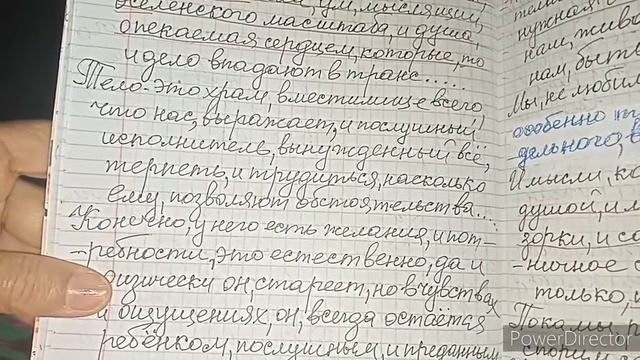 вселенского масштаба, и душа,
опекаемая сердцем, которые, то
и дело впадают в транс.....
Тело-это храм, вместилище всего
что нас, выражает, и послушный
исполнитель, вынужденный всё,
терпеть, и трудиться, насколько
ему, позволяют обстоятельства....
Конечно, у него есть желания, и пот-
-ребности, это естественно, да и
физически он, стареет, но в чувствах
и ощущениях, он, всегда остаётся
ребёнком, послушным, и преданным
нужная
нам, жива
нам, быть
Мы, не любим
особенно
дельного,
И мысли, ко
душой, и
зорки, и со
-ничное
только,
Пока мы,
PowerDirector